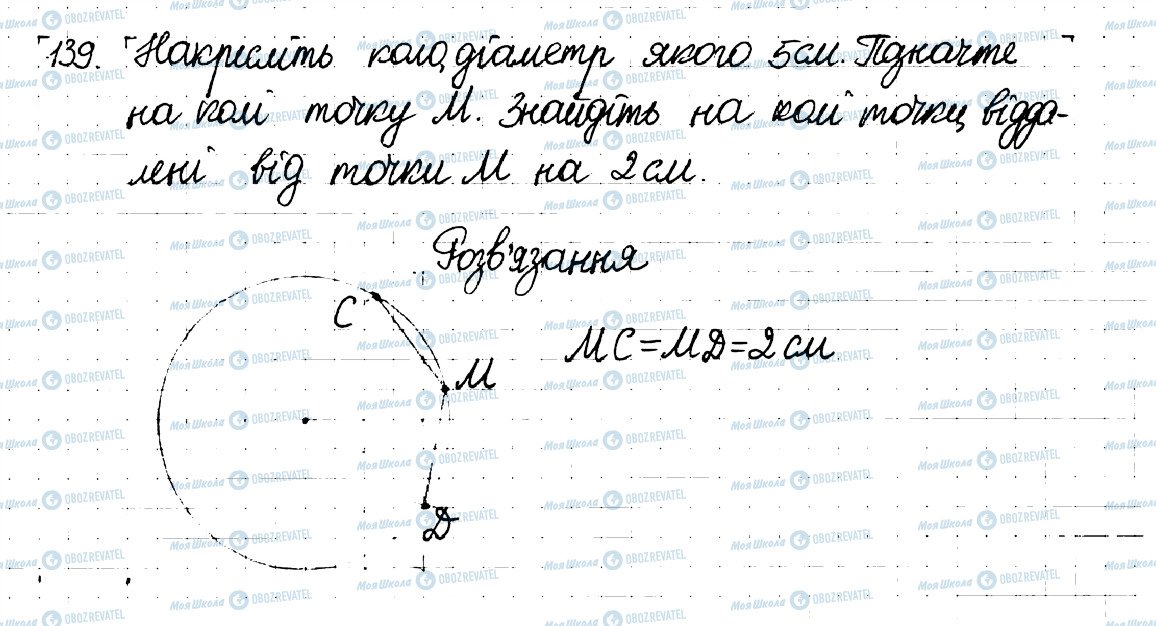 139. Накресліть коло, діаметр якого 5 см. Позначте
на колі точку М. Знайдіть на колі точки, відда-
лені від точки М на 2 см.
Розв'язання
С
М
МС=МД=2 см
Д
Моя Школа OBOZREVATEL